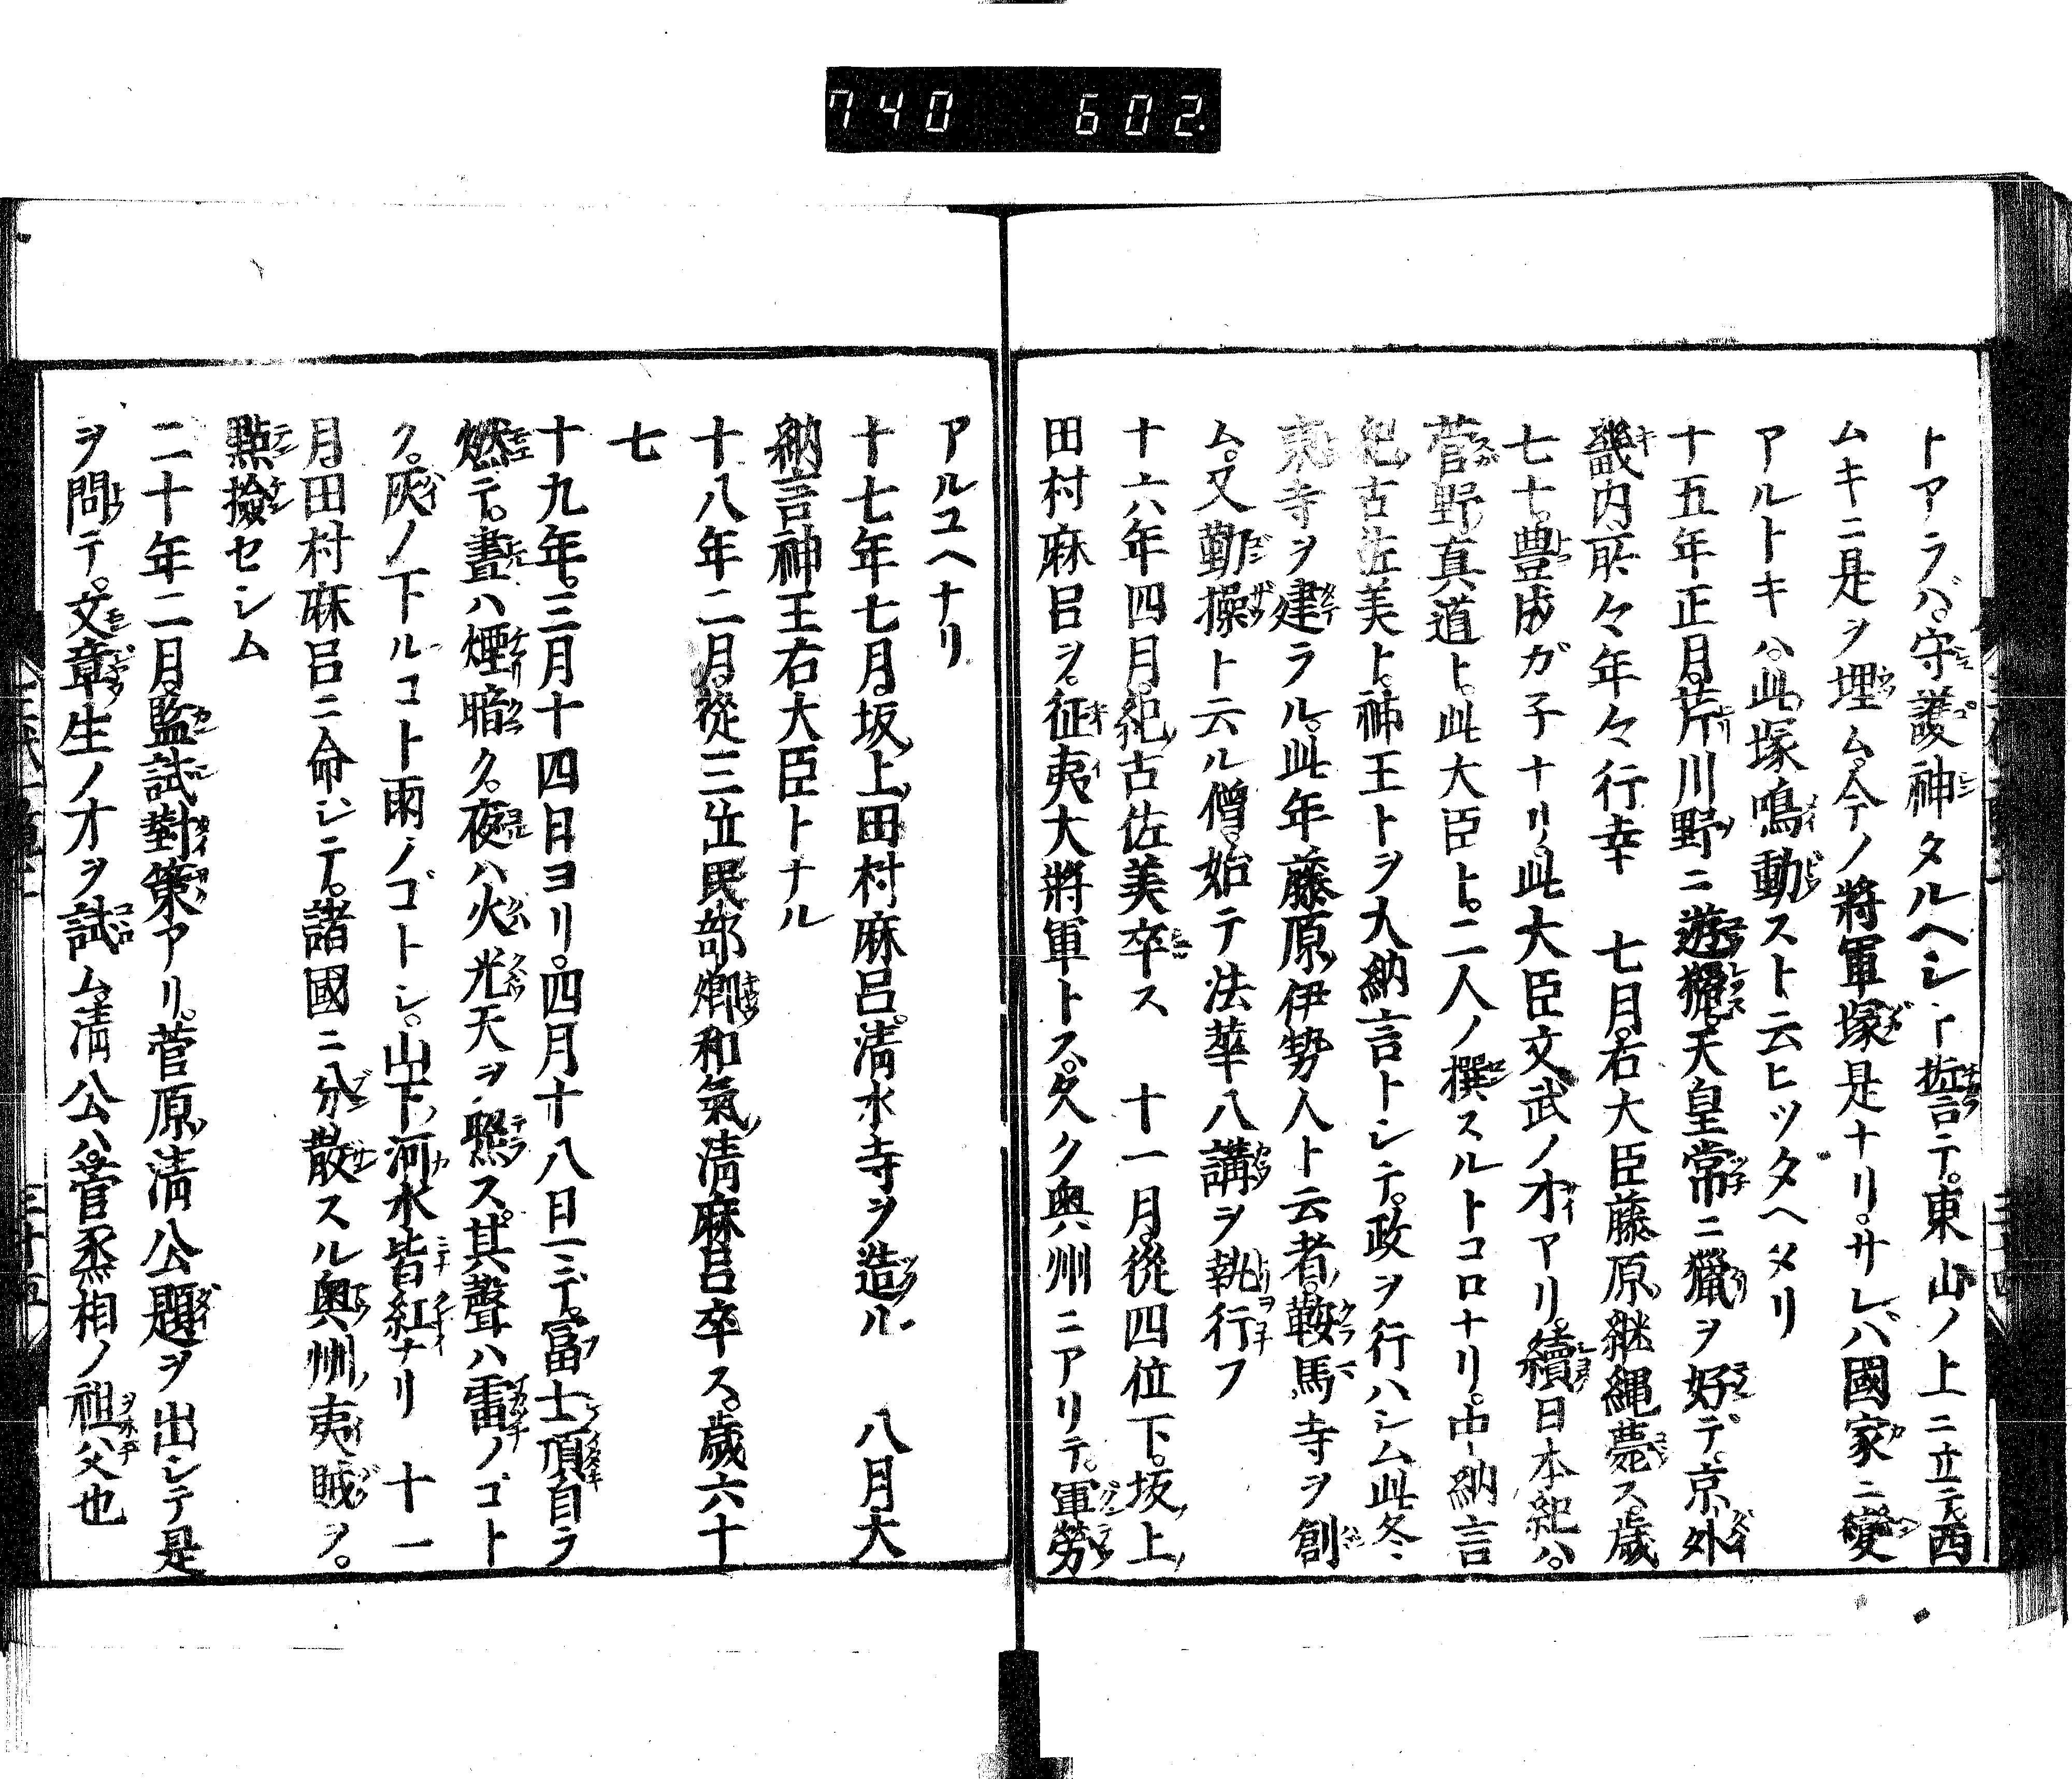 740 602
トアラバ。守護神タルヘシト誓テ。東山ノ上ニ立テ。西
ムキニ是ヲ埋ム。今ノ將軍塚是ナリ。サレバ國家ニ變
アルトキハ。此塚鳴動スト云ヒツタヘメリ
十五年正月。芹川野ニ遊獵。天皇常ニ獵ヲ好テ。京外
畿内所々年々行幸 七月。右大臣藤原継縄薨ス。歳
七十。豊成ガ子ナリ。此大臣文武ノ才アリ。續日本紀ハ。
菅野真道ト。此大臣ト。二人ノ撰スルトコロナリ。中納言
紀古佐美ト。神王トヲ大納言トシテ。政ヲ行ハシム。此冬
東寺ヲ建ラル。此年藤原伊勢人ト云者。鞍馬寺ヲ創
ム。又勤操ト云ル僧。始テ法華八講ヲ執行フ
十六年四月。紀古佐美卒ス 十一月。從四位下。坂上
田村麻呂ヲ。征夷大將軍トス。久ク奥州ニアリテ。軍勞
アルユヘナリ
十七年七月。坂上田村麻呂。清水寺ヲ造ル 八月大
納言神王右大臣トナル
十八年二月。從三位民部卿和氣清麻呂卒ス。歳六十
七
十九年。三月十四日ヨリ。四月十八日ニ。富士頂自ラ
燃テ。晝ハ煙暗ク。夜ハ火光天ヲ照ス。其聲ハ雷ノゴト
ク。灰ノ下ルコト雨ノゴトシ。山下河水皆紅ナリ 十一
月。田村麻呂ニ命シテ。諸國ニ分散スル奥州夷賊ヲ。
點撿セシム
二十年二月。監試對策アリ。菅原清公題ヲ出シテ是
ヲ問テ。文章生ノ才ヲ試ム。清公ハ。菅丞相ノ祖父也